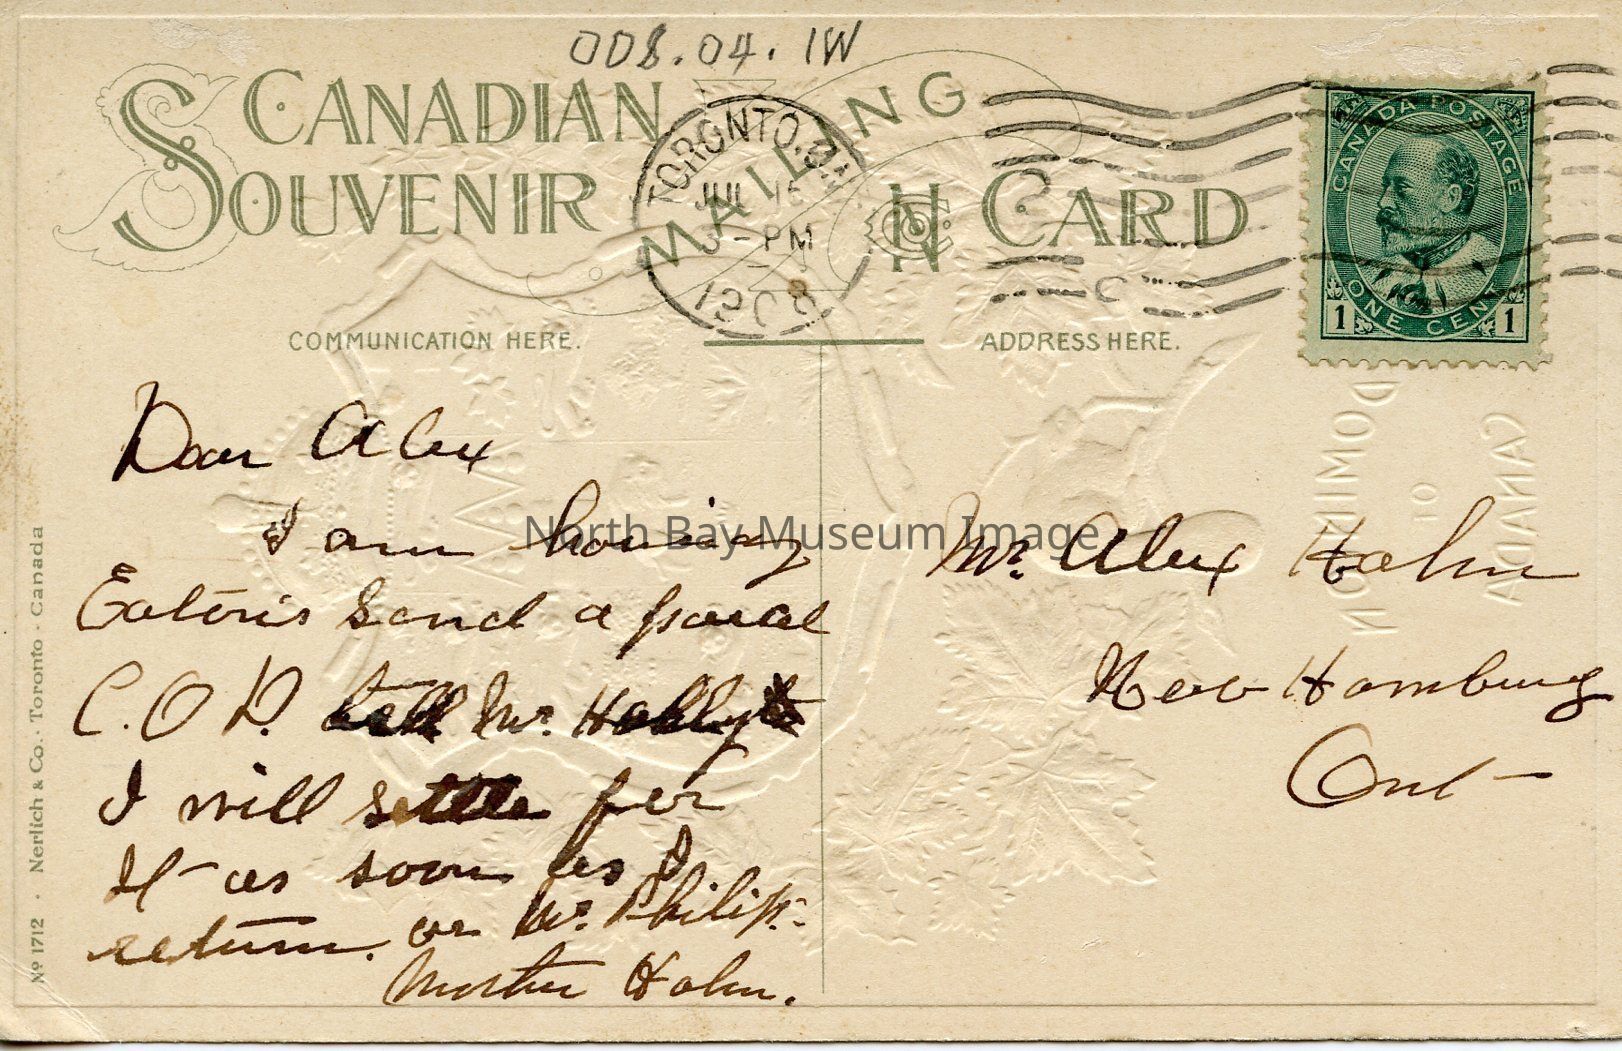 008.04.1W
CANADIAN
SOUVENIR
MAILING
CARD
TORONTO. ON
JUL 15
3-PM
1908
CANADA POSTAGE
ONE CENT
1 1
COMMUNICATION HERE.
ADDRESS HERE.
Dear Alex
I am having
Eaton's send a parcel
C.O.D. tell Mr.
I will settle for
It as soon as I
return. or Mr. Philip.
Mother Hahn.
Mr. Alex Hahn
New Hamburg
Ont
North Bay Museum Image
DOMINION
OF
CANADA
No 1712 · Nerlich & Co. · Toronto · Canada